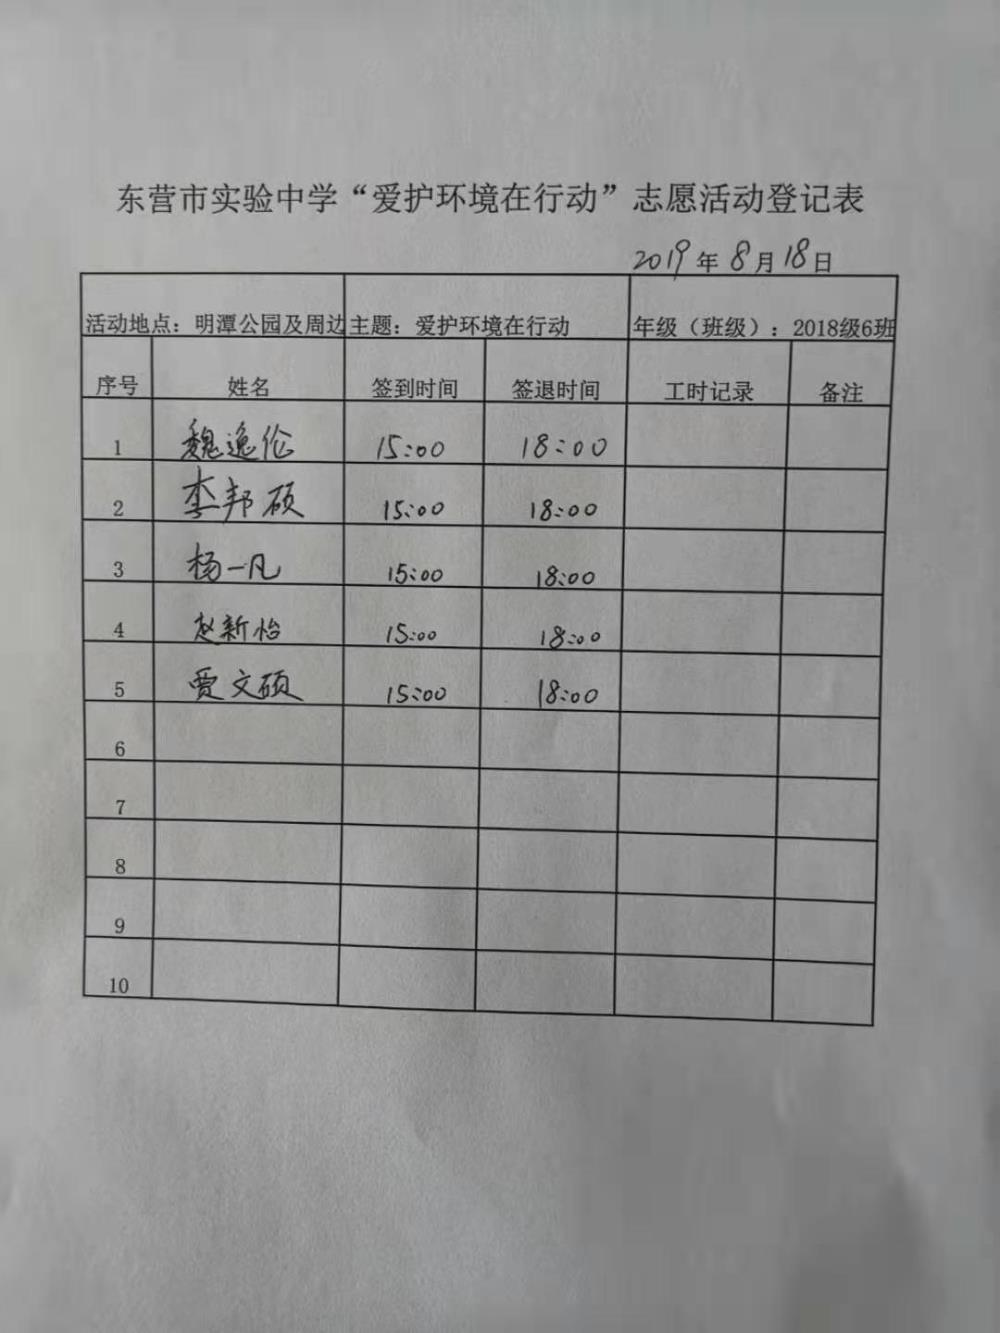 东营市实验中学“爱护环境在行动”志愿活动登记表
2019年8月18日
活动地点：明潭公园及周边 主题：爱护环境在行动 年级（班级）：2018级6班
序号 姓名 签到时间 签退时间 工时记录 备注
1 魏逸伦 15:00 18:00
2 李邦硕 15:00 18:00
3 杨一凡 15:00 18:00
4 赵新怡 15:00 18:00
5 贾文硕 15:00 18:00
6
7
8
9
10